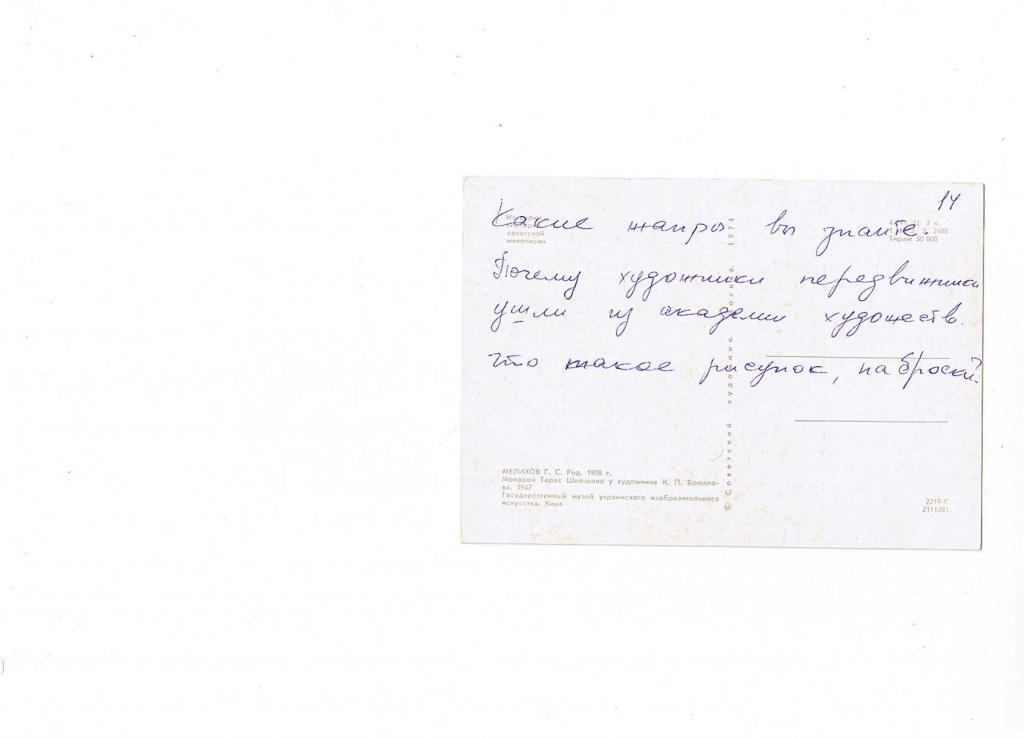 14
Какие жанры вы знаите.
советской
живописи
Тираж 30 000
Почему художники передвижники
ушли из академии художеств.
что такое рисунок, наброски?
© Советский художник. Москва. 1974
МЕЛИХОВ Г. С. Род. 1908 г.
Молодой Тарас Шевченко у художника К. П. Брюлло-
ва. 1947
Государственный музей украинского изобразительного
искусства. Киев
2219-С
2111281